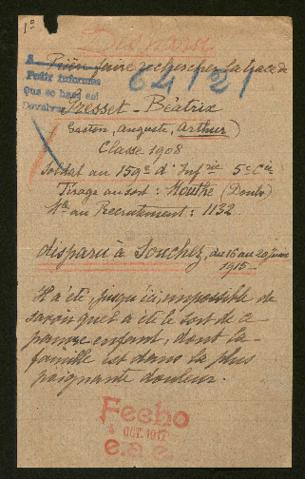 1°
Disparu
64121
Prière faire rechercher la trace de
Pedir informes
que se haga al
Tresset-Béatrix
Gaston, Auguste, Arthur)
Classe 1908
Soldat au 159e d'Infrie 5e Cie
Tirage au sort: Mouthe (Doubs)
No au Recrutement: 1132
disparu à Souchez, du 16 au 20 juin
1915-
Il a été, jusqu'ici, impossible de
savoir quel a été le sort de ce
pauvre enfant, dont la
famille est dans la plus
poignante douleur.
Fecho
OCT. 1917
e.a.e.